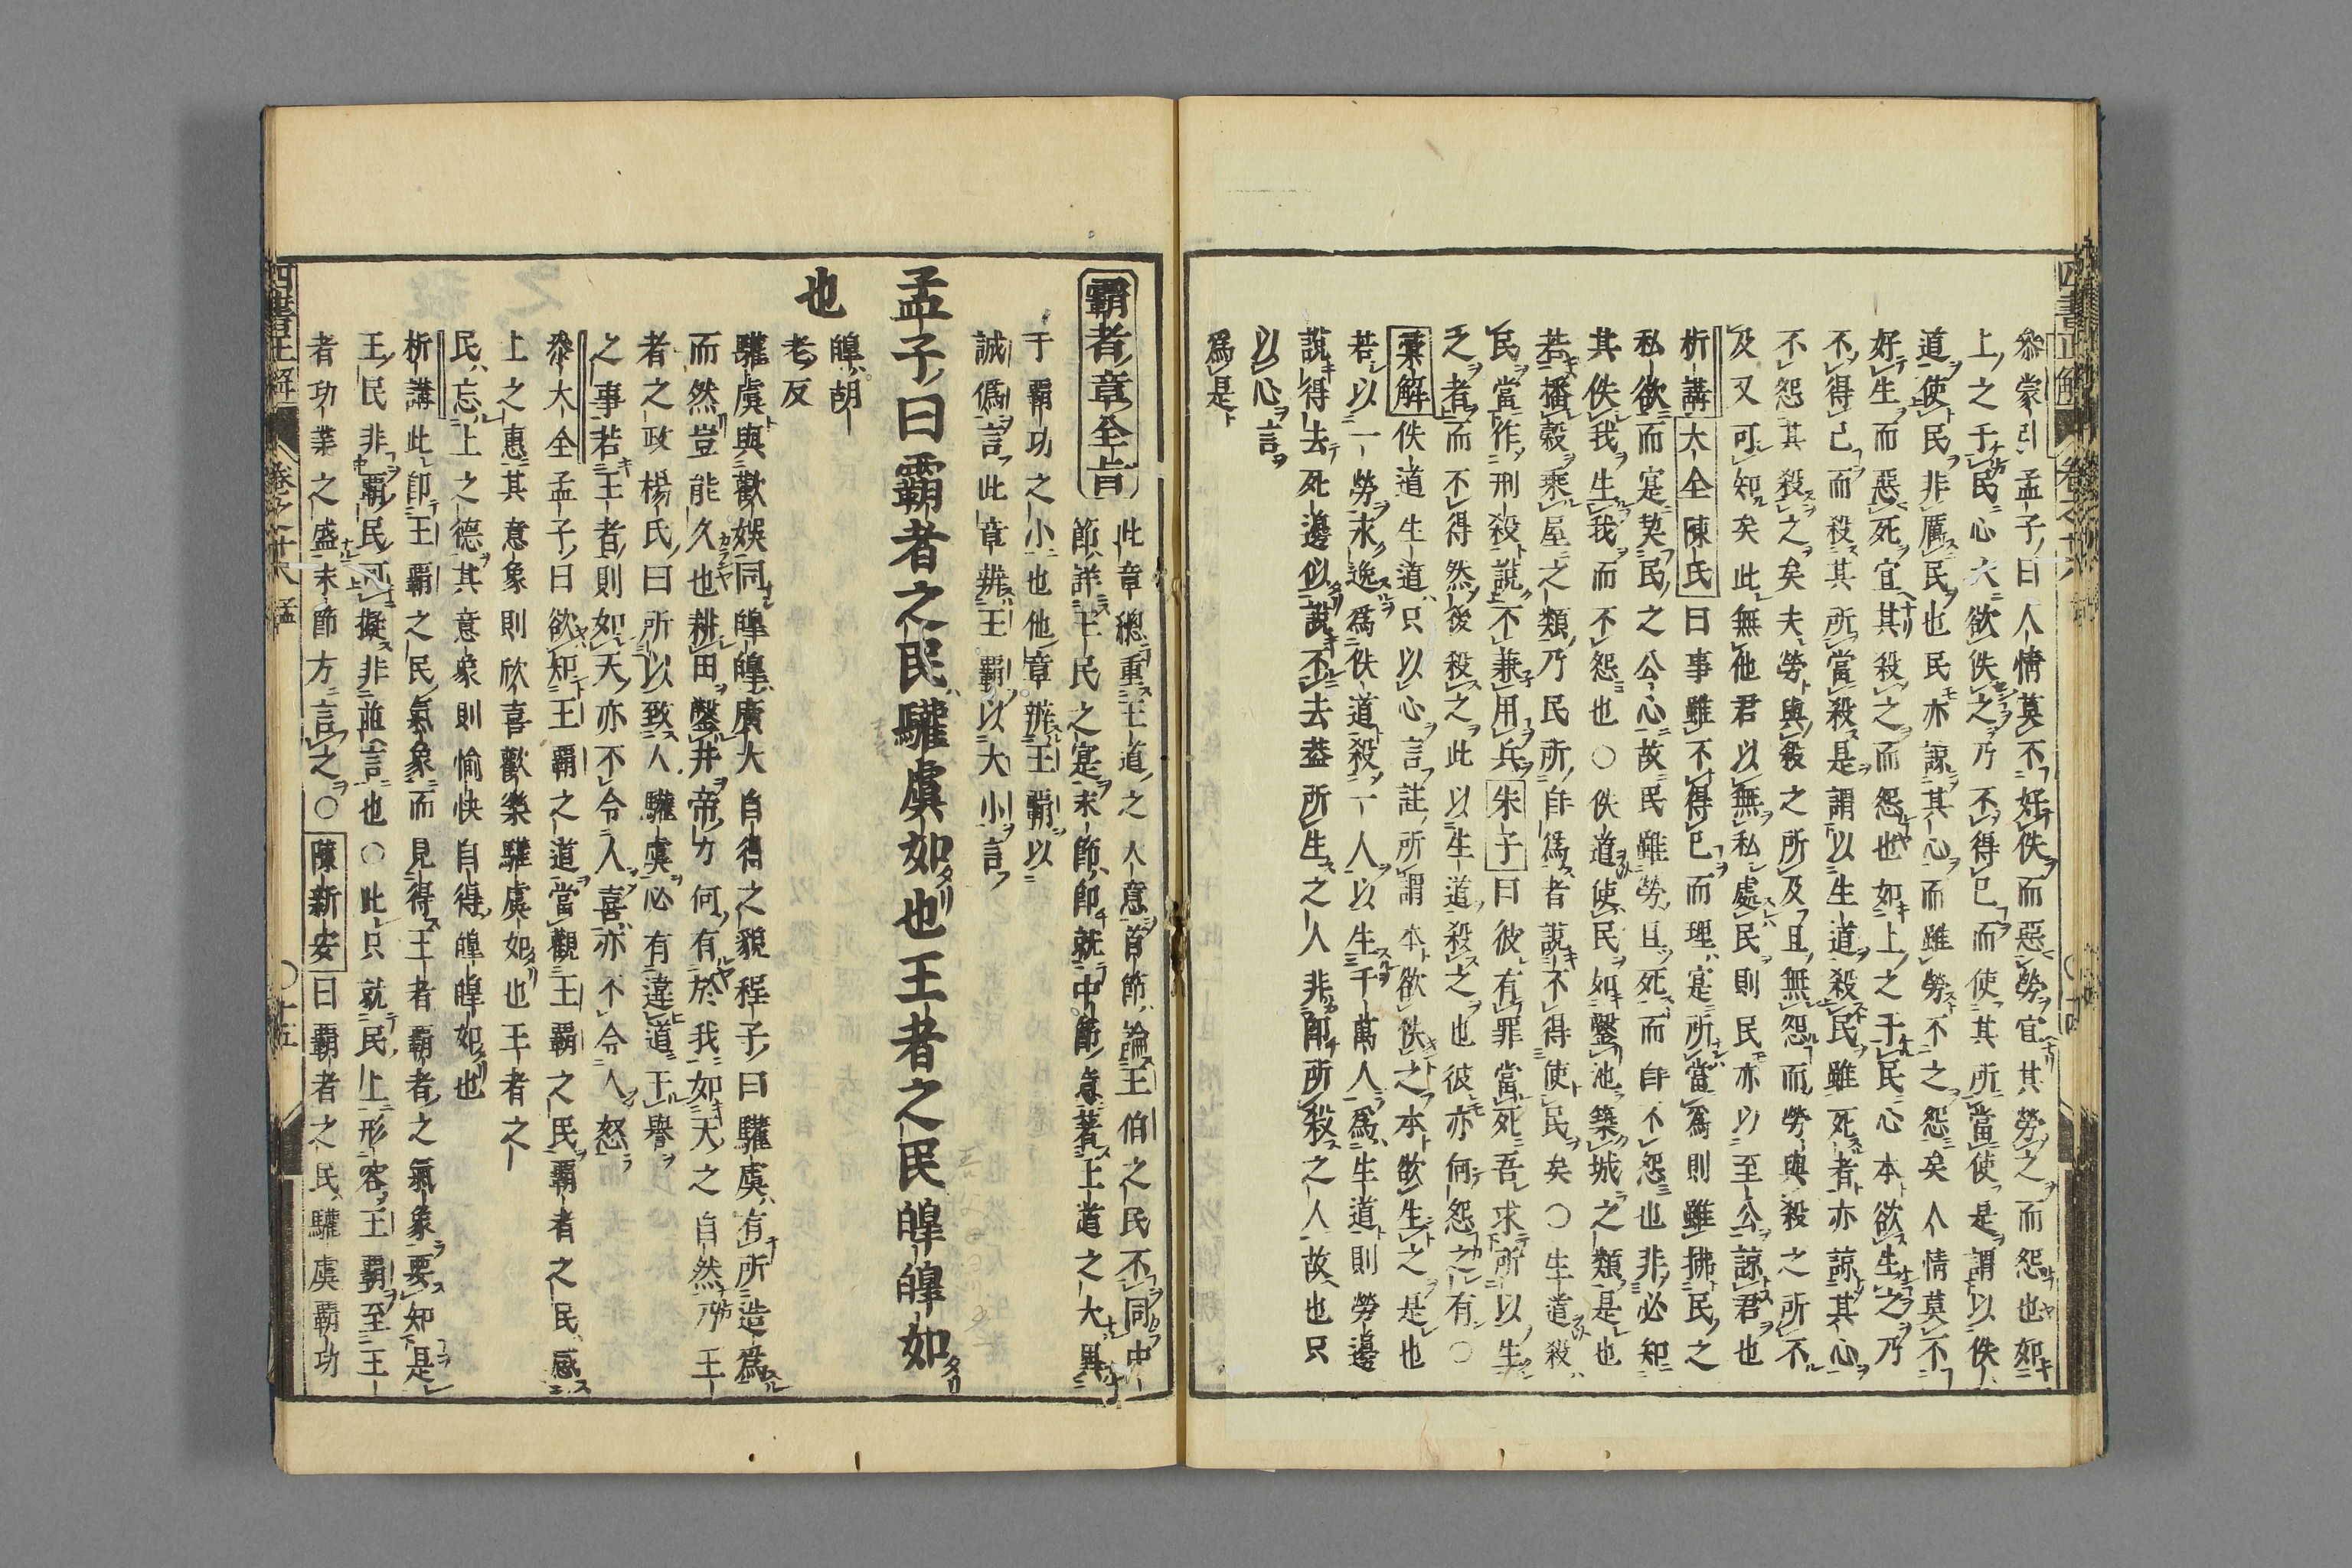 參蒙引孟子曰人情莫不好佚而惡勞宜其勞之而怨也如
上之于民心大欲佚之乃不得已而使其所當使是謂以佚
道使民非厲民也民亦諒其心而雖勞不之怨矣人情莫不
好生而惡死宜其殺之而怨也如上之于民心本欲生之乃
不得已而殺其所當殺是謂以生道殺民雖死者亦諒其心
不怨其殺之矣夫勞與殺之所及且無怨而勞與殺之所不
及又可知矣此無他君以無私處民則民亦以至公諒君也
析講大全陳氏曰事雖不得已而理寔所當爲則雖拂民之
私欲而寔契民之公心故民雖勞且死而自不怨也非必知
其佚我生我而不怨也○佚道使民如鑿池築城之類是也
若播穀乘屋之類乃民所自爲者說不得使民矣○生道殺
民當作刑殺說不兼用兵朱子曰彼有罪當死吾求所以生
之者而不得然後殺之此以生道殺之也彼亦何怨之有○
彙解佚道生道只以心言註所謂本欲佚之本欲生之是也
若以一勞求逸爲佚道殺一人以生千萬人爲生道則勞邊
說得去死邊似說不去葢所生之人非卽所殺之人故也只
以心言
爲是
霸者章全旨
此章總重王道之人意首節論王伯之民不同中
節詳王民之寔末節卽就中節意著王道之大異
于霸功之小也他章辨王霸以
誠僞言此章辨王霸以大小言
孟子曰霸者之民驩虞如也王者之民皥皥如
也
皥胡
老反
驩虞與歡娛同皥皥廣大自得之貌程子曰驩虞有所造爲
而然豈能久也耕田鑿井帝力何有於我如天之自然乃王
者之政楊氏曰所以致人驩虞必有違道干譽
之事若王者則如天亦不令人喜亦不令人怒
參大全孟子曰欲知王霸之道當觀王霸之民霸者之民感
上之惠其意象則欣喜歡樂驩虞如也王者之
民忘上之德其意象則愉快自得皥皥如也
析講此卽王霸之民氣象而見得王者霸者之氣象要知是
王民非霸民可擬非並言也○此只就民上形容王霸至王
者功業之盛末節方言之○陳新安曰霸者之民驩虞霸功